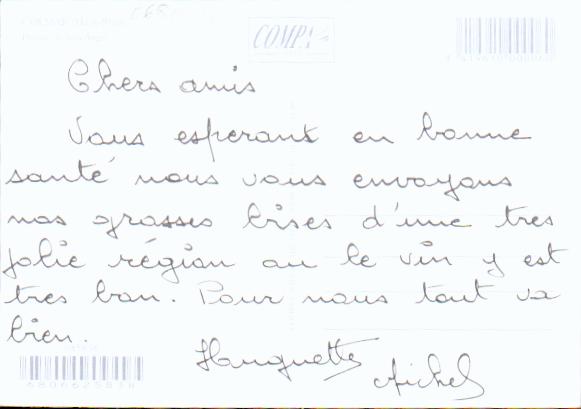 COMPA
Chers amis
Vous esperant en bonne
santé nous vous envoyons
nos grosses bises d'une tres
jolie région ou le vin y est
tres bon. Pour nous tout va
bien.
Huguette
Michel
6806625838